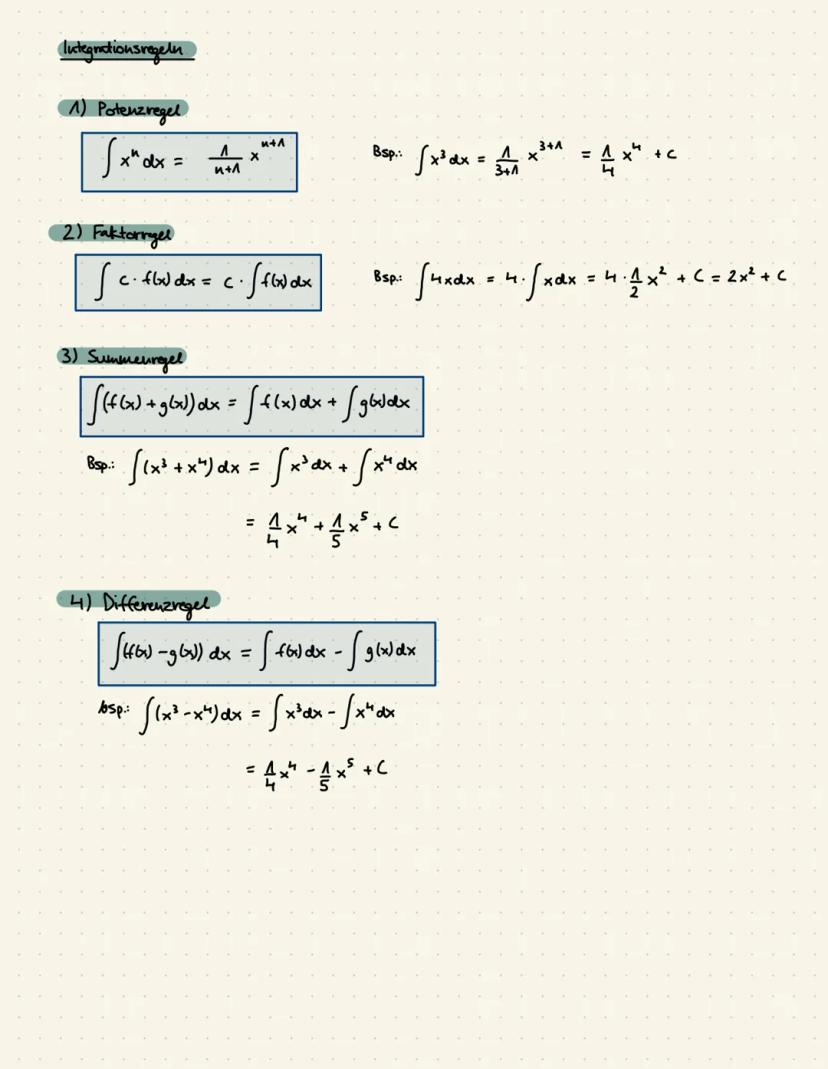 Integrationsregeln
1) Potenzregel
∫ xⁿ dx = 1/(n+1) x^(n+1)
Bsp.: ∫ x³ dx = 1/(3+1) x^(3+1) = 1/4 x⁴ + C
2) Faktorregel
∫ c · f(x) dx = c · ∫ f(x) dx
Bsp.: ∫ 4x dx = 4 · ∫ x dx = 4 · 1/2 x² + C = 2x² + C
3) Summenregel
∫ (f(x) + g(x)) dx = ∫ f(x) dx + ∫ g(x) dx
Bsp.: ∫ (x³ + x⁴) dx = ∫ x³ dx + ∫ x⁴ dx
= 1/4 x⁴ + 1/5 x⁵ + C
4) Differenzregel
∫ (f(x) - g(x)) dx = ∫ f(x) dx - ∫ g(x) dx
bsp.: ∫ (x³ - x⁴) dx = ∫ x³ dx - ∫ x⁴ dx
= 1/4 x⁴ - 1/5 x⁵ + C